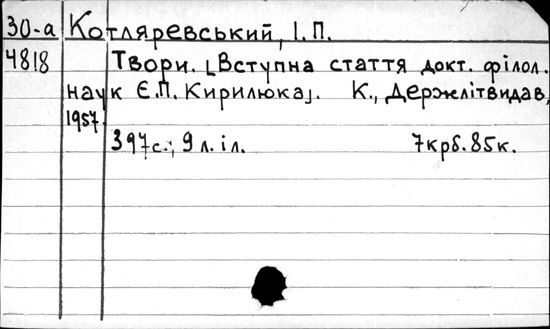 30-а Котляревський, І.П.
4818 Твори. [Вступна стаття докт. філол.
наук Є.П. Кирилюка]. К., Держлітвидав,
1957.
397с.; 9 л. іл. 7крб.85к.